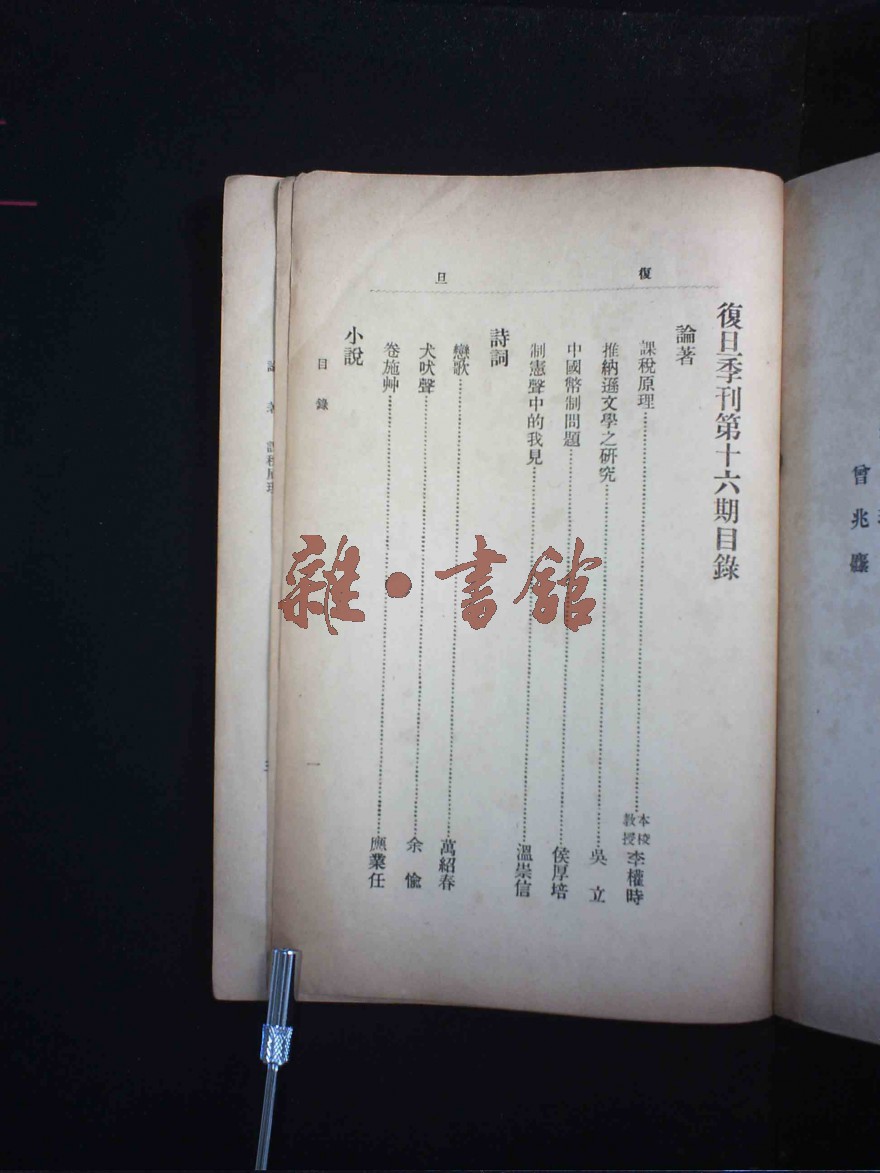 曾兆
復旦
復旦季刊第十六期目錄
論著
課稅原理 本校教授 李權時
推納遜文學之研究 吳立
中國幣制問題 侯厚培
制憲聲中的我見 溫崇信
詩詞
戀歌 萬紹春
犬吠聲 余愉
卷施艸 應業任
小說
目錄
一
課稅原理
雜·書館